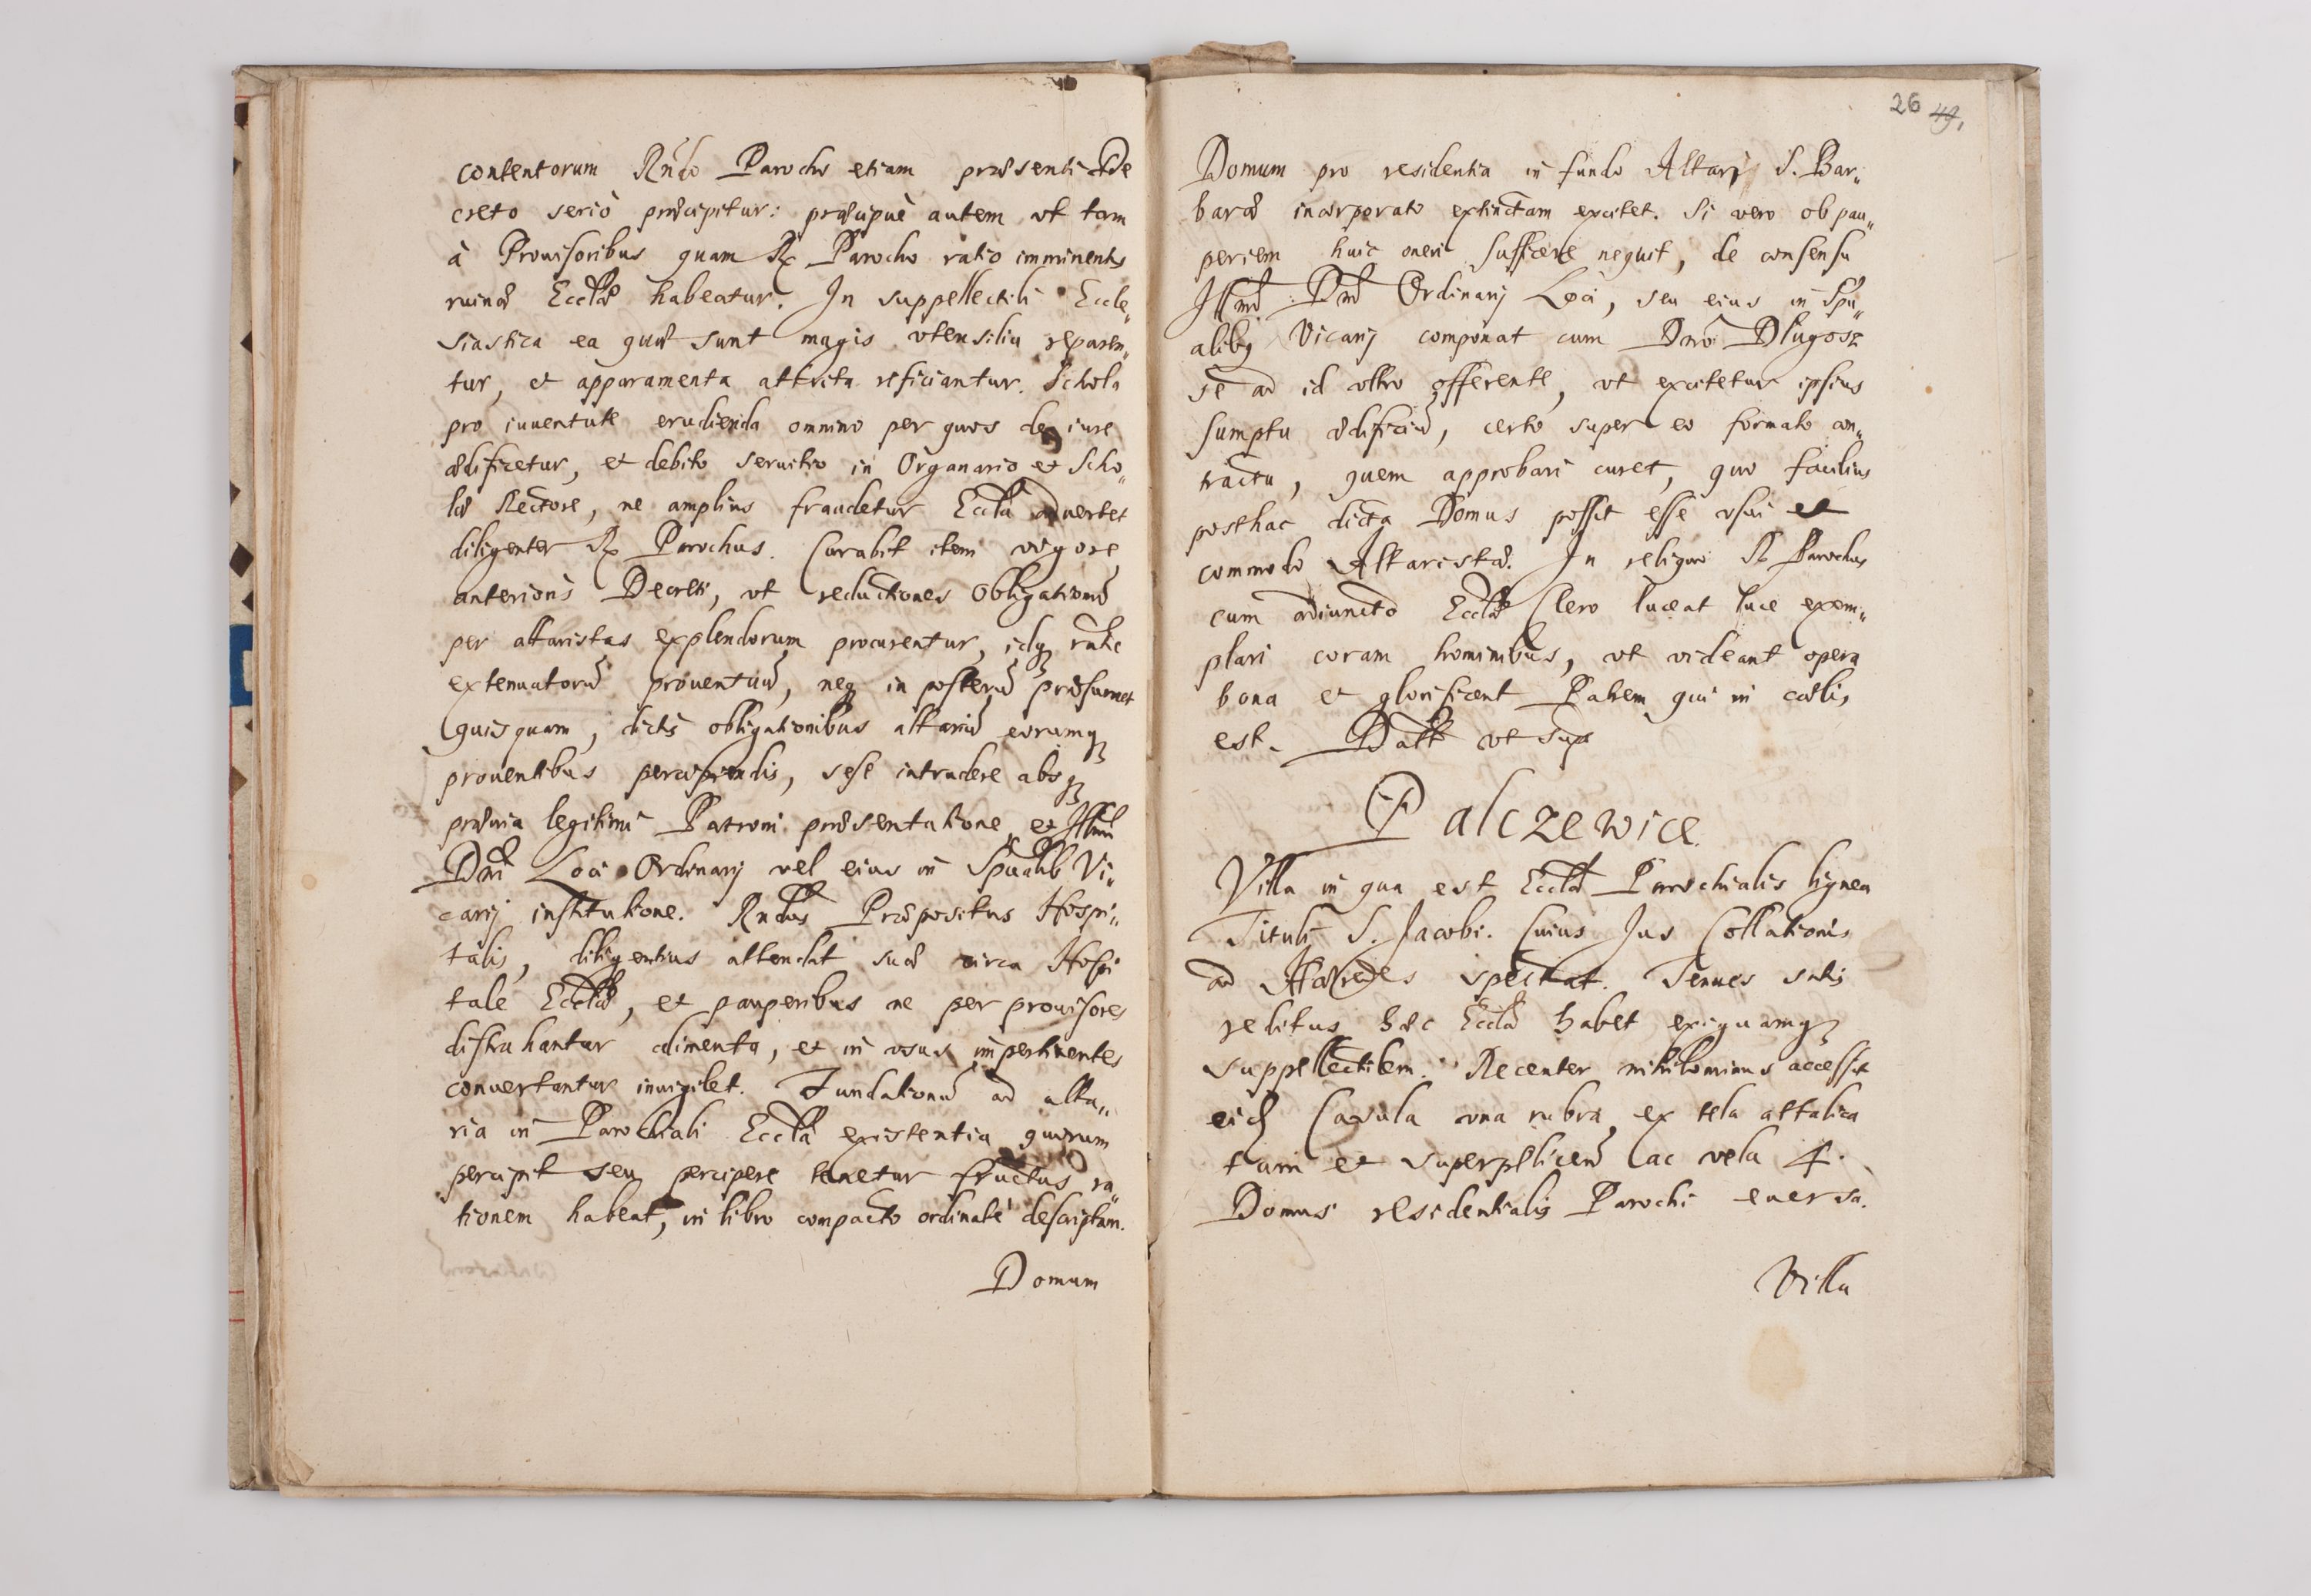 contentorum Rndo Parocho etiam præsenti De
creto seriò præcipitur: præcipuè autem vt tam
à Prouisoribus quam R Parocho ratio imminentis
ruinæ Eccliæ habeatur. In suppellectili Eccle„
siastica ea quæ sunt magis vtensilia reparen„
tur, et apparamenta attrita reficiantur. Schola
pro iuuentute erudienda omnino per quos de iure
ædificetur, et debito seruitio in Organario et Scho„
læ Rectore, ne amplius fraudetur Eccla aduertet
diligenter R Parochus. Curabit item vigore
anterioris Decreti, vt reductiones Obligationū
per altaristas explendorum procurentur, idq rnĕ
extenuatorū prouentuū, neq in posterū præsumet
quisquam, dictis obligationibus altariū eorumq
prouentibus percipiendis, sese intrudere absq
præuia legitimi Patroni præsentatione, et Illmi
Dni Loci Ordinarij vel eius in Spualib Vi„
carij institutione. Rndus Præpositus Hospi„
talis, diligentius attendat suæ circa Hospi
tale Eccliæ, et pauperibus ne per prouisores
distrahantur alimenta, et in vsus impertinentes
conuertantur inuigilet. Fundationū ad alta„
ria in Parochiali Eccla existentia quorum
percipit seu percipere tenetur fructus ra„
tionem habeat, in libro compacto ordinatè descriptam.
Domum
26 49,
Domum pro residentia in fundo Altaris S. Bar„
baræ incorporato extinctam excitet. Si vero ob pau„
periem huic oneri sufficere nequit, de consensu
Illmi Dni Ordinarij Loci, seu eius in Spu„
alibq Vicarij componat cum Dno Dlugosz
se ad id vltro offerente, vt excitetur ipsius
sumptu ædificiū, certo super eo formato con„
tractu, quem approbari curet, quo facilius
posthac dicta Domus possit esse vsui et
commodo Altaristæ. In reliquo R Parochus
cum adiuncto Eccliæ Clero luceat luce exem„
plari coram hominibus, vt videant opera
bona et glorificent Patrem qui in cælis
est. Datt vt sup
Palczewice.
Villa in qua est Eccla Parochialis lignea
Tituli S. Jacobi. Cuius Jus Collationis
ad Hæredes spectat. Tenues satis
reditus hæc Eccla habet exiguamq
suppellectilem. Recenter nihilominus accessit
eid Casula vna rubra, ex tela attalica
tam et superpelliceū ac vela 4.
Domus residentialis Parochi euersa.
Villa